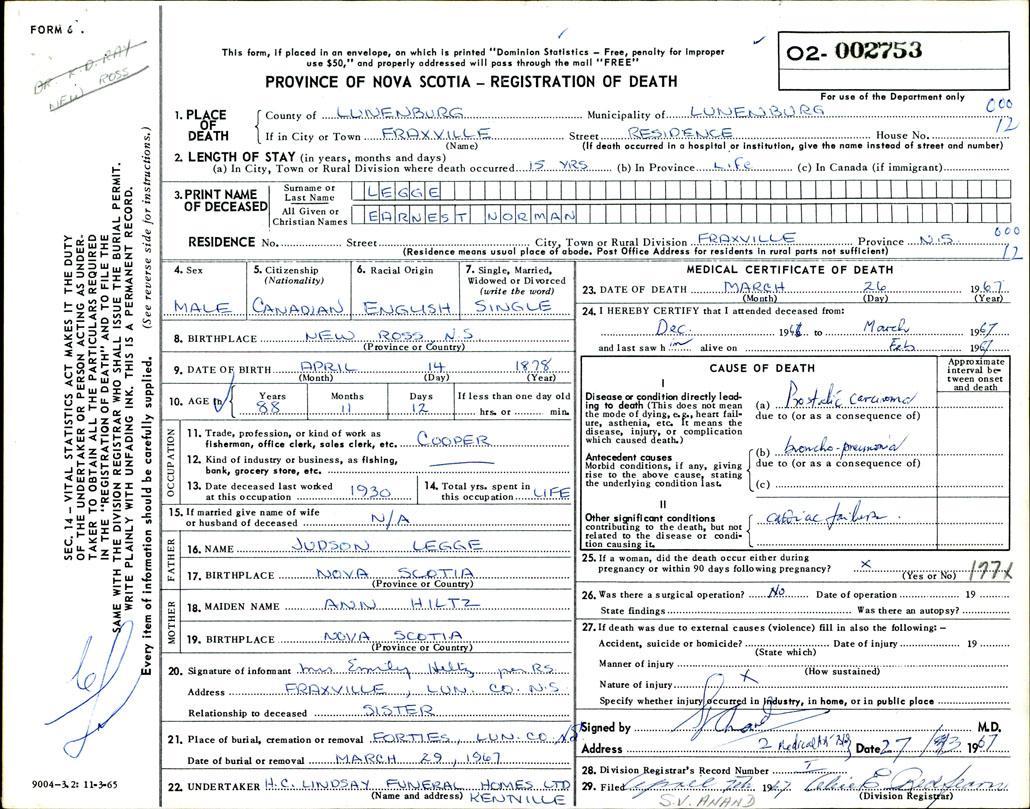 FORM 6.
DR. K.D. RAY
NEW ROSS
This form, if placed in an envelope, on which is printed "Dominion Statistics – Free, penalty for improper
use $50," and properly addressed will pass through the mail "FREE"
PROVINCE OF NOVA SCOTIA – REGISTRATION OF DEATH
02-002753
For use of the Department only
000
12
1. PLACE OF DEATH County of LUNENBURG Municipality of LUNENBURG
If in City or Town FRAXVILLE Street RESIDENCE House No.
(Name) (If death occurred in a hospital or institution, give the name instead of street and number)
2. LENGTH OF STAY (in years, months and days)
(a) In City, Town or Rural Division where death occurred 15 YRS (b) In Province Life (c) In Canada (if immigrant)
3. PRINT NAME OF DECEASED Surname or Last Name LEGGE
All Given or Christian Names EARNEST NORMAN
RESIDENCE No. Street City, Town or Rural Division FRAXVILLE Province N.S. 000
12
(Residence means usual place of abode. Post Office Address for residents in rural parts not sufficient)
4. Sex MALE
5. Citizenship (Nationality) CANADIAN
6. Racial Origin ENGLISH
7. Single, Married, Widowed or Divorced (write the word) SINGLE
8. BIRTHPLACE NEW ROSS N.S
(Province or Country)
9. DATE OF BIRTH APRIL 14 1878
(Month) (Day) (Year)
10. AGE in Years Months Days If less than one day old
88 11 12 hrs. or min.
OCCUPATION
11. Trade, profession, or kind of work as fisherman, office clerk, sales clerk, etc. COOPER
12. Kind of industry or business, as fishing, bank, grocery store, etc.
13. Date deceased last worked at this occupation 1930
14. Total yrs. spent in this occupation LIFE
15. If married give name of wife or husband of deceased N/A
FATHER
16. NAME JUDSON LEGGE
17. BIRTHPLACE NOVA SCOTIA
(Province or Country)
MOTHER
18. MAIDEN NAME ANN HILTZ
19. BIRTHPLACE NOVA SCOTIA
(Province or Country)
20. Signature of informant Mrs. Emily Hiltz per R.S.
Address FRAXVILLE, LUN. CO. N.S.
Relationship to deceased SISTER
21. Place of burial, cremation or removal FORTIES, LUN. CO. N.S
Date of burial or removal MARCH 29, 1967
22. UNDERTAKER H.C. LINDSAY FUNERAL HOMES LTD
(Name and address) KENTVILLE
MEDICAL CERTIFICATE OF DEATH
23. DATE OF DEATH MARCH 26 1967
(Month) (Day) (Year)
24. I HEREBY CERTIFY that I attended deceased from:
Dec. 196 to March 1967
and last saw him alive on Feb 1967
CAUSE OF DEATH
Approximate interval between onset and death
I
Disease or condition directly leading to death (This does not mean the mode of dying, e.g., heart failure, asthenia, etc. It means the disease, injury, or complication which caused death.)
(a) Prostatic carcinoma
due to (or as a consequence of)
Antecedent causes
Morbid conditions, if any, giving rise to the above cause, stating the underlying condition last.
(b) broncho-pneumonia
due to (or as a consequence of)
(c)
II
Other significant conditions contributing to the death, but not related to the disease or condition causing it.
cardiac failure.
25. If a woman, did the death occur either during pregnancy or within 90 days following pregnancy? X
(Yes or No) 177X
26. Was there a surgical operation? No Date of operation 19
State findings Was there an autopsy?
27. If death was due to external causes (violence) fill in also the following: –
Accident, suicide or homicide? Date of injury 19
(State which)
Manner of injury
(How sustained)
Nature of injury X
Specify whether injury occurred in industry, in home, or in public place
Signed by SVAnand M.D.
Address Date 27/3 1967
28. Division Registrar's Record Number 1
29. Filed April 1967
(Division Registrar)
S.V. ANAND
SEC. 14 – VITAL STATISTICS ACT MAKES IT THE DUTY
OF THE UNDERTAKER OR PERSON ACTING AS UNDER-
TAKER TO OBTAIN ALL THE PARTICULARS REQUIRED
IN THE "REGISTRATION OF DEATH" AND TO FILE THE
SAME WITH THE DIVISION REGISTRAR WHO SHALL ISSUE THE BURIAL PERMIT.
WRITE PLAINLY WITH UNFADING INK. THIS IS A PERMANENT RECORD.
Every item of information should be carefully supplied. (See reverse side for instructions.)
9004–3.2: 11-3-65